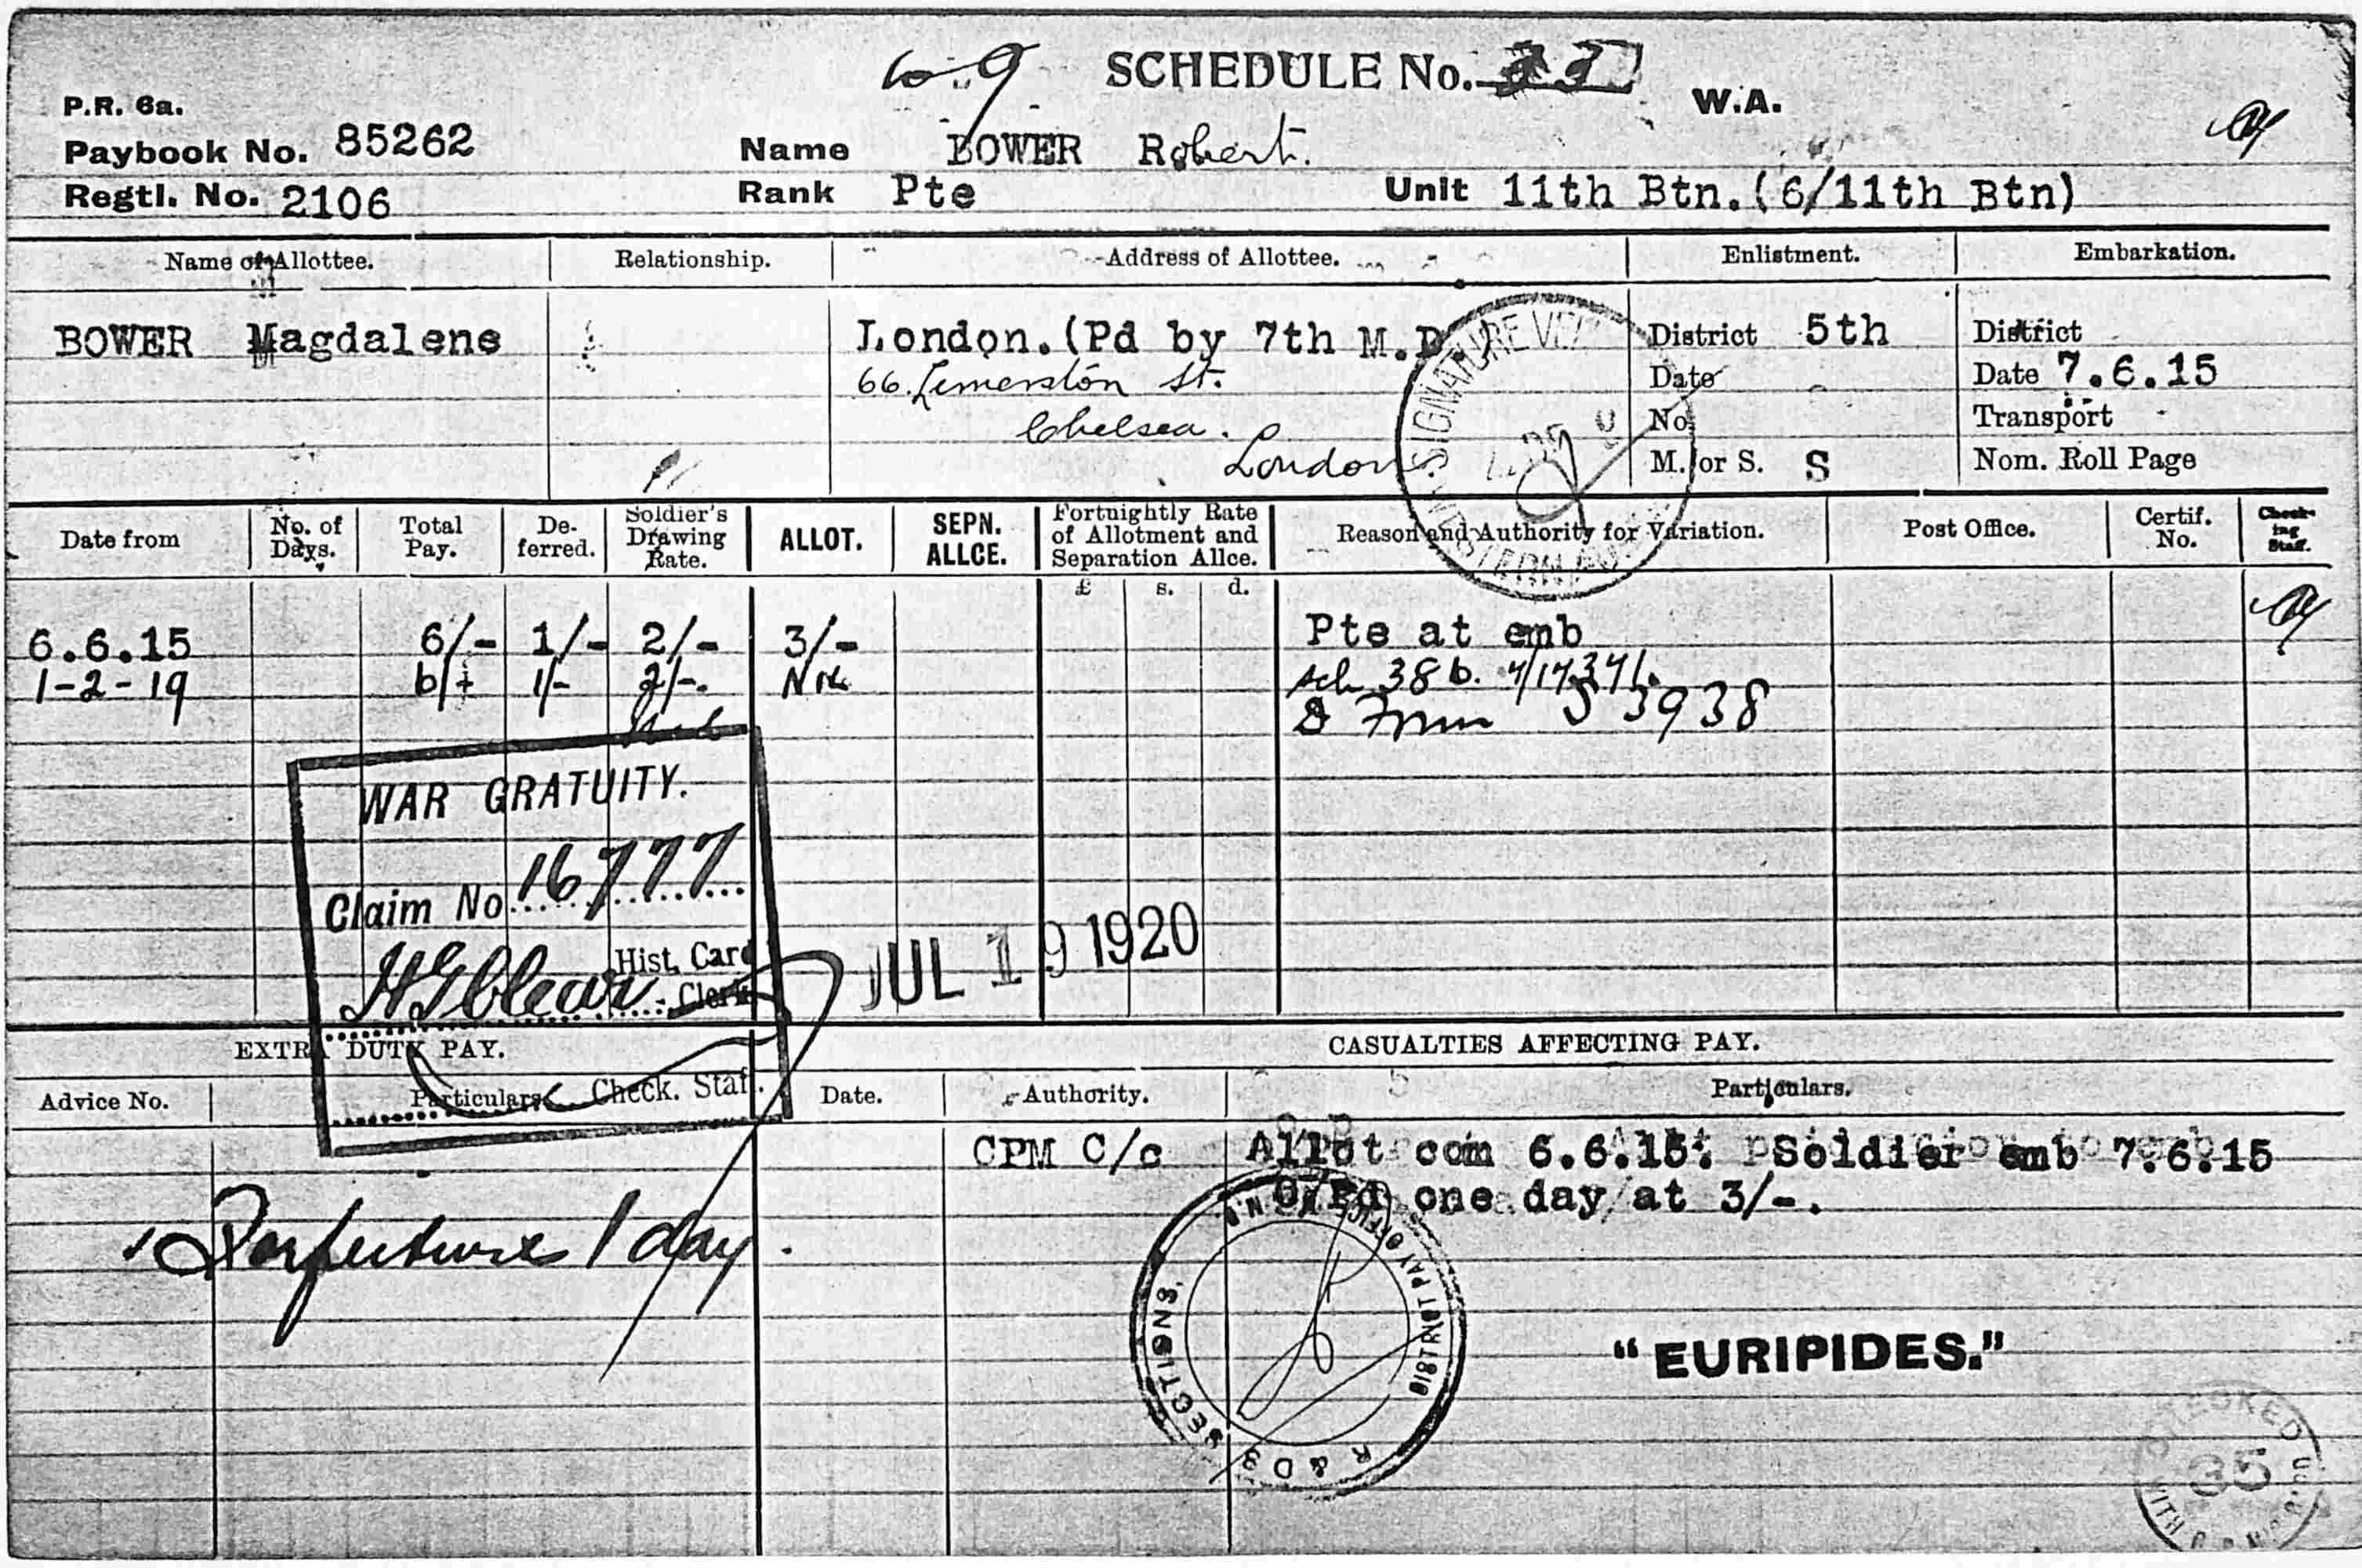 P.R. 6a.
SCHEDULE No.
W.A.
Paybook No. 85262
Name BOWER Robert.
Regtl. No. 2106
Rank Pte
Unit 11th Btn. (6/11th Btn)
Name of Allottee. Relationship. Address of Allottee. Enlistment. Embarkation.
BOWER Magdalene
London. (Pd by 7th M.D.)
66. Limerston St.
Chelsea.
London
District 5th
Date
No.
M. or S. S
District
Date 7.6.15
Transport
Nom. Roll Page
Date from No. of Days. Total Pay. De-ferred. Soldier's Drawing Rate. ALLOT. SEPN. ALLCE. Fortnightly Rate of Allotment and Separation Allce. Reason and Authority for Variation. Post Office. Certif. No. Check-ing Staff.
£ s. d.
6.6.15 6/- 1/- 2/- 3/- Pte at emb
1-2-19 6/- 1/- 2/-. Nil
S 3938
WAR GRATUITY.
Claim No. 16777
Hist. Card
Clerk
Check. Staff.
JUL 19 1920
EXTRA DUTY PAY. CASUALTIES AFFECTING PAY.
Advice No. Particulars Date. Authority. Particulars.
CPM C/c Allot com 6.6.15. Soldier emb 7.6.15
O/Pd one day at 3/-.
Forfeiture 1 day.
DISTRICT PAY OFFICE
R & D SECTIONS.
"EURIPIDES."
CHECKED
35
WITH